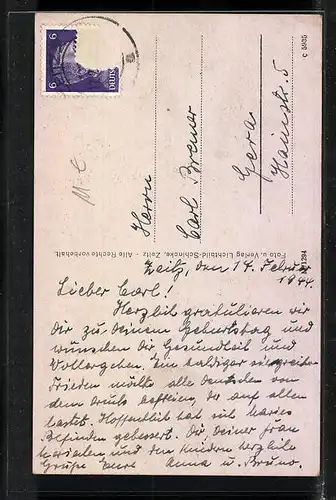 6 6
DEUTSCHES
C 5935
M-C
Herrn
Carl Bremer
Gera
Hainstr. 5
Foto u. Verlag Lichtbild-Schincke, Zeitz - Alle Rechte vorbehalten.
1294
Zeitz, den 14. Februar
1944.
Lieber Carl!
Herzlich gratulieren wir
Dir zu Deinem Geburtstag und
wünschen Dir Gesundheit und
Wollergehen. Ein baldiger siegreicher
Frieden möchte alle Deutschen von
dem Druck befreien, der auf allen
lastet. Hoffentlich hat sich
Befinden gebessert. Dir, Deiner Frau
und den Kindern herzliche
Grüße Eure Anna u. Bruno.